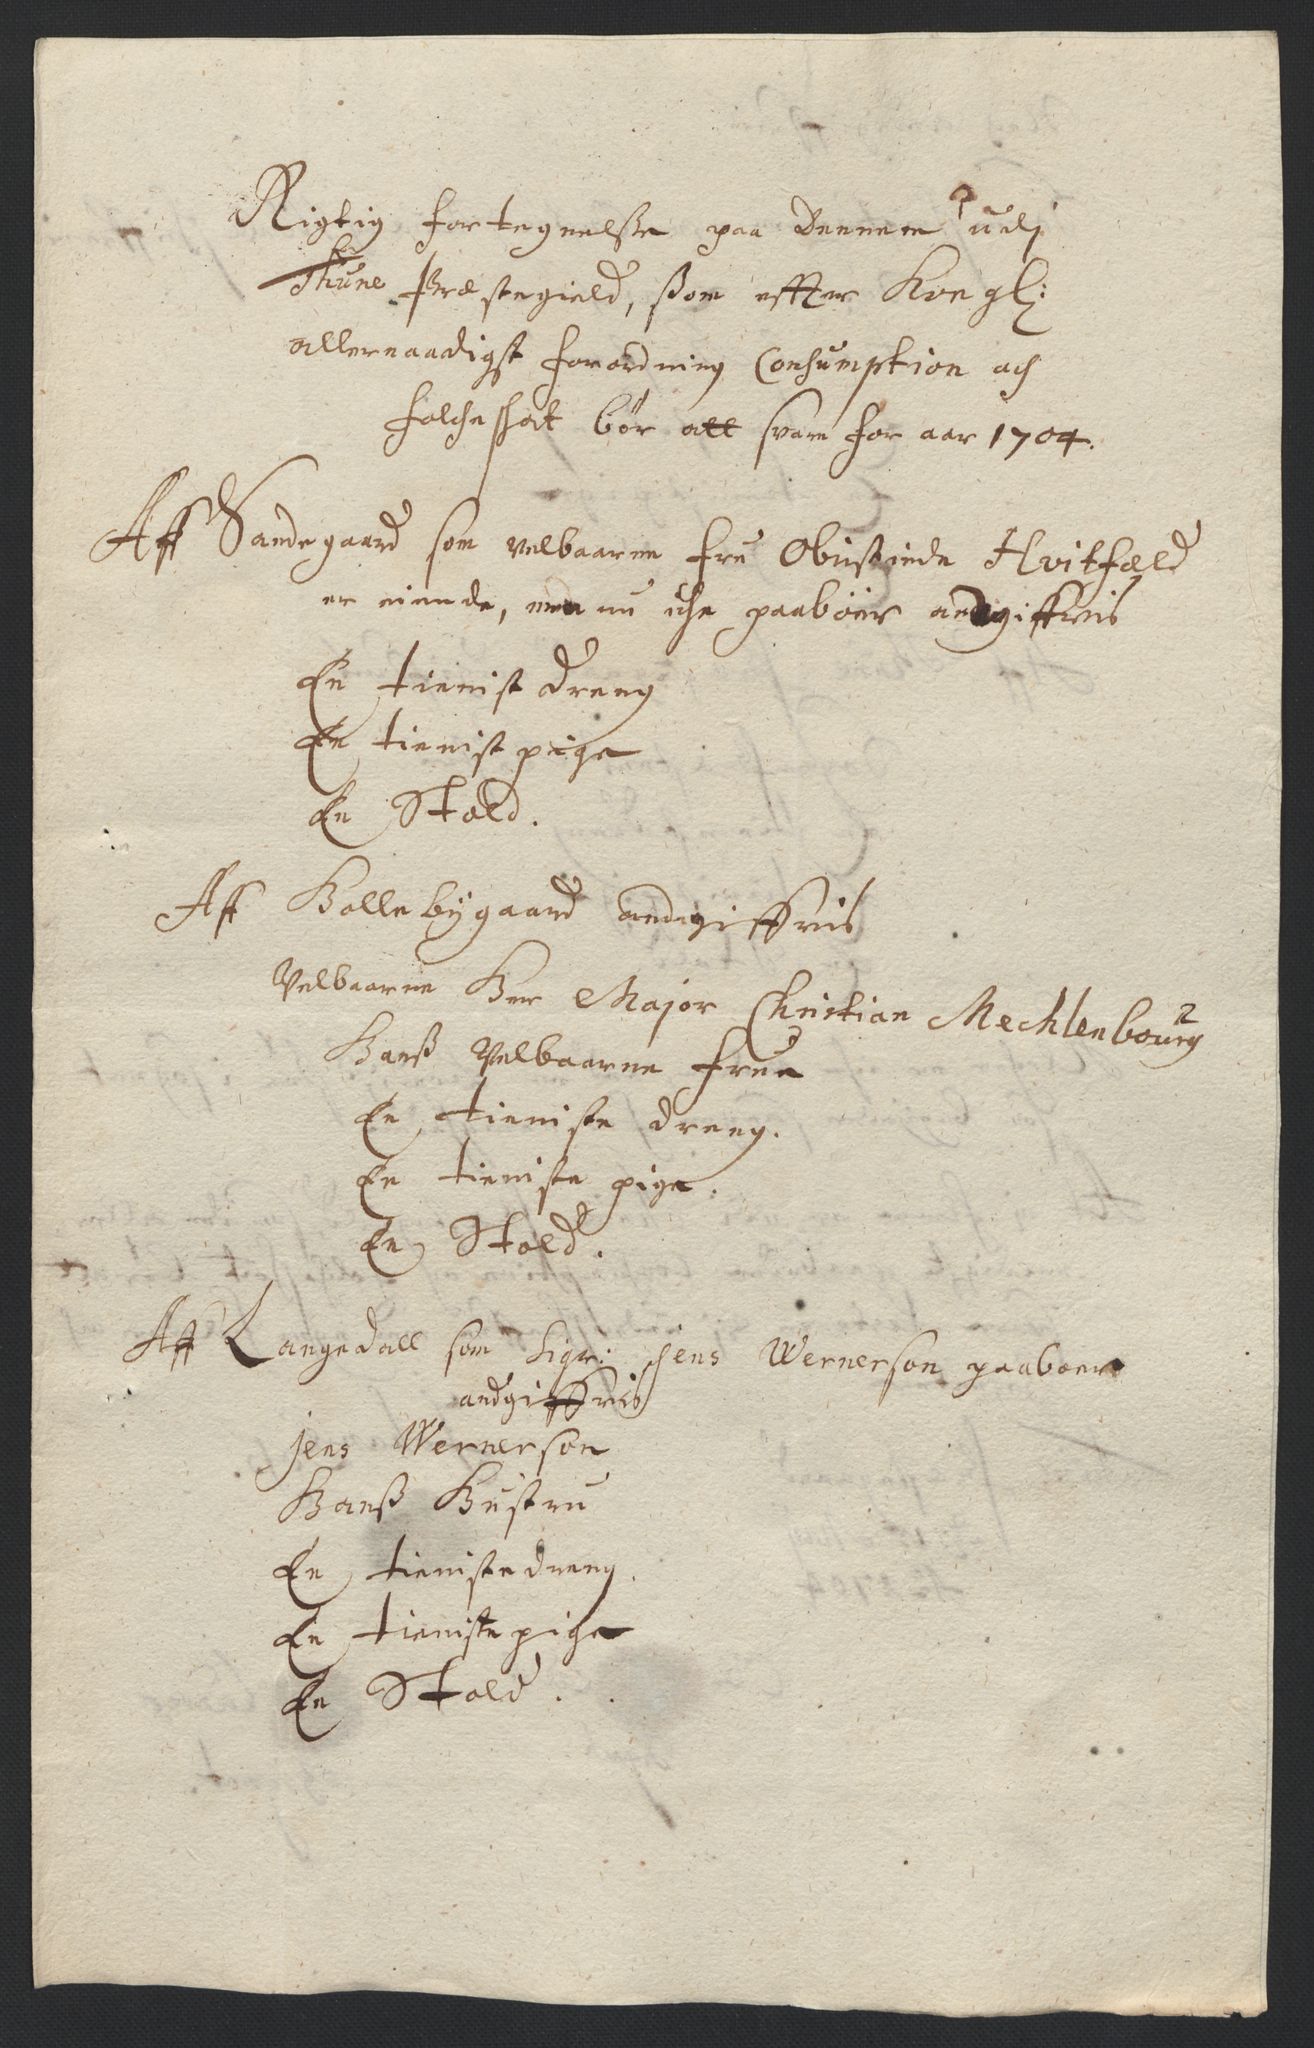 Rigtig fortegnelsse paa Dennem udj
Thune Præstegield, som effter Kongl:
allernaadigst forordning Consumption och
folcheschat bör att svare for aar 1704.
Aff Sandegaard som velbaarne frue Hvitfeld
er eiende, men nu iche paaboer andgiffvis
En tienist dreng
En tienist pige
En Stald.
Aff Hollebygaard andgiffvis
Velbaarne Her Major Christian Mechlenbourg
Hanß Velbaarne frue
En tieniste dreng.
En tieniste pige.
En Stald.
Aff Langedall som Sigr: Jens Wernerson paaboer
andgiffvis
Jens Wernerson
Hanß Hustru
En tienistedreng.
En tienistepige
En Stald.